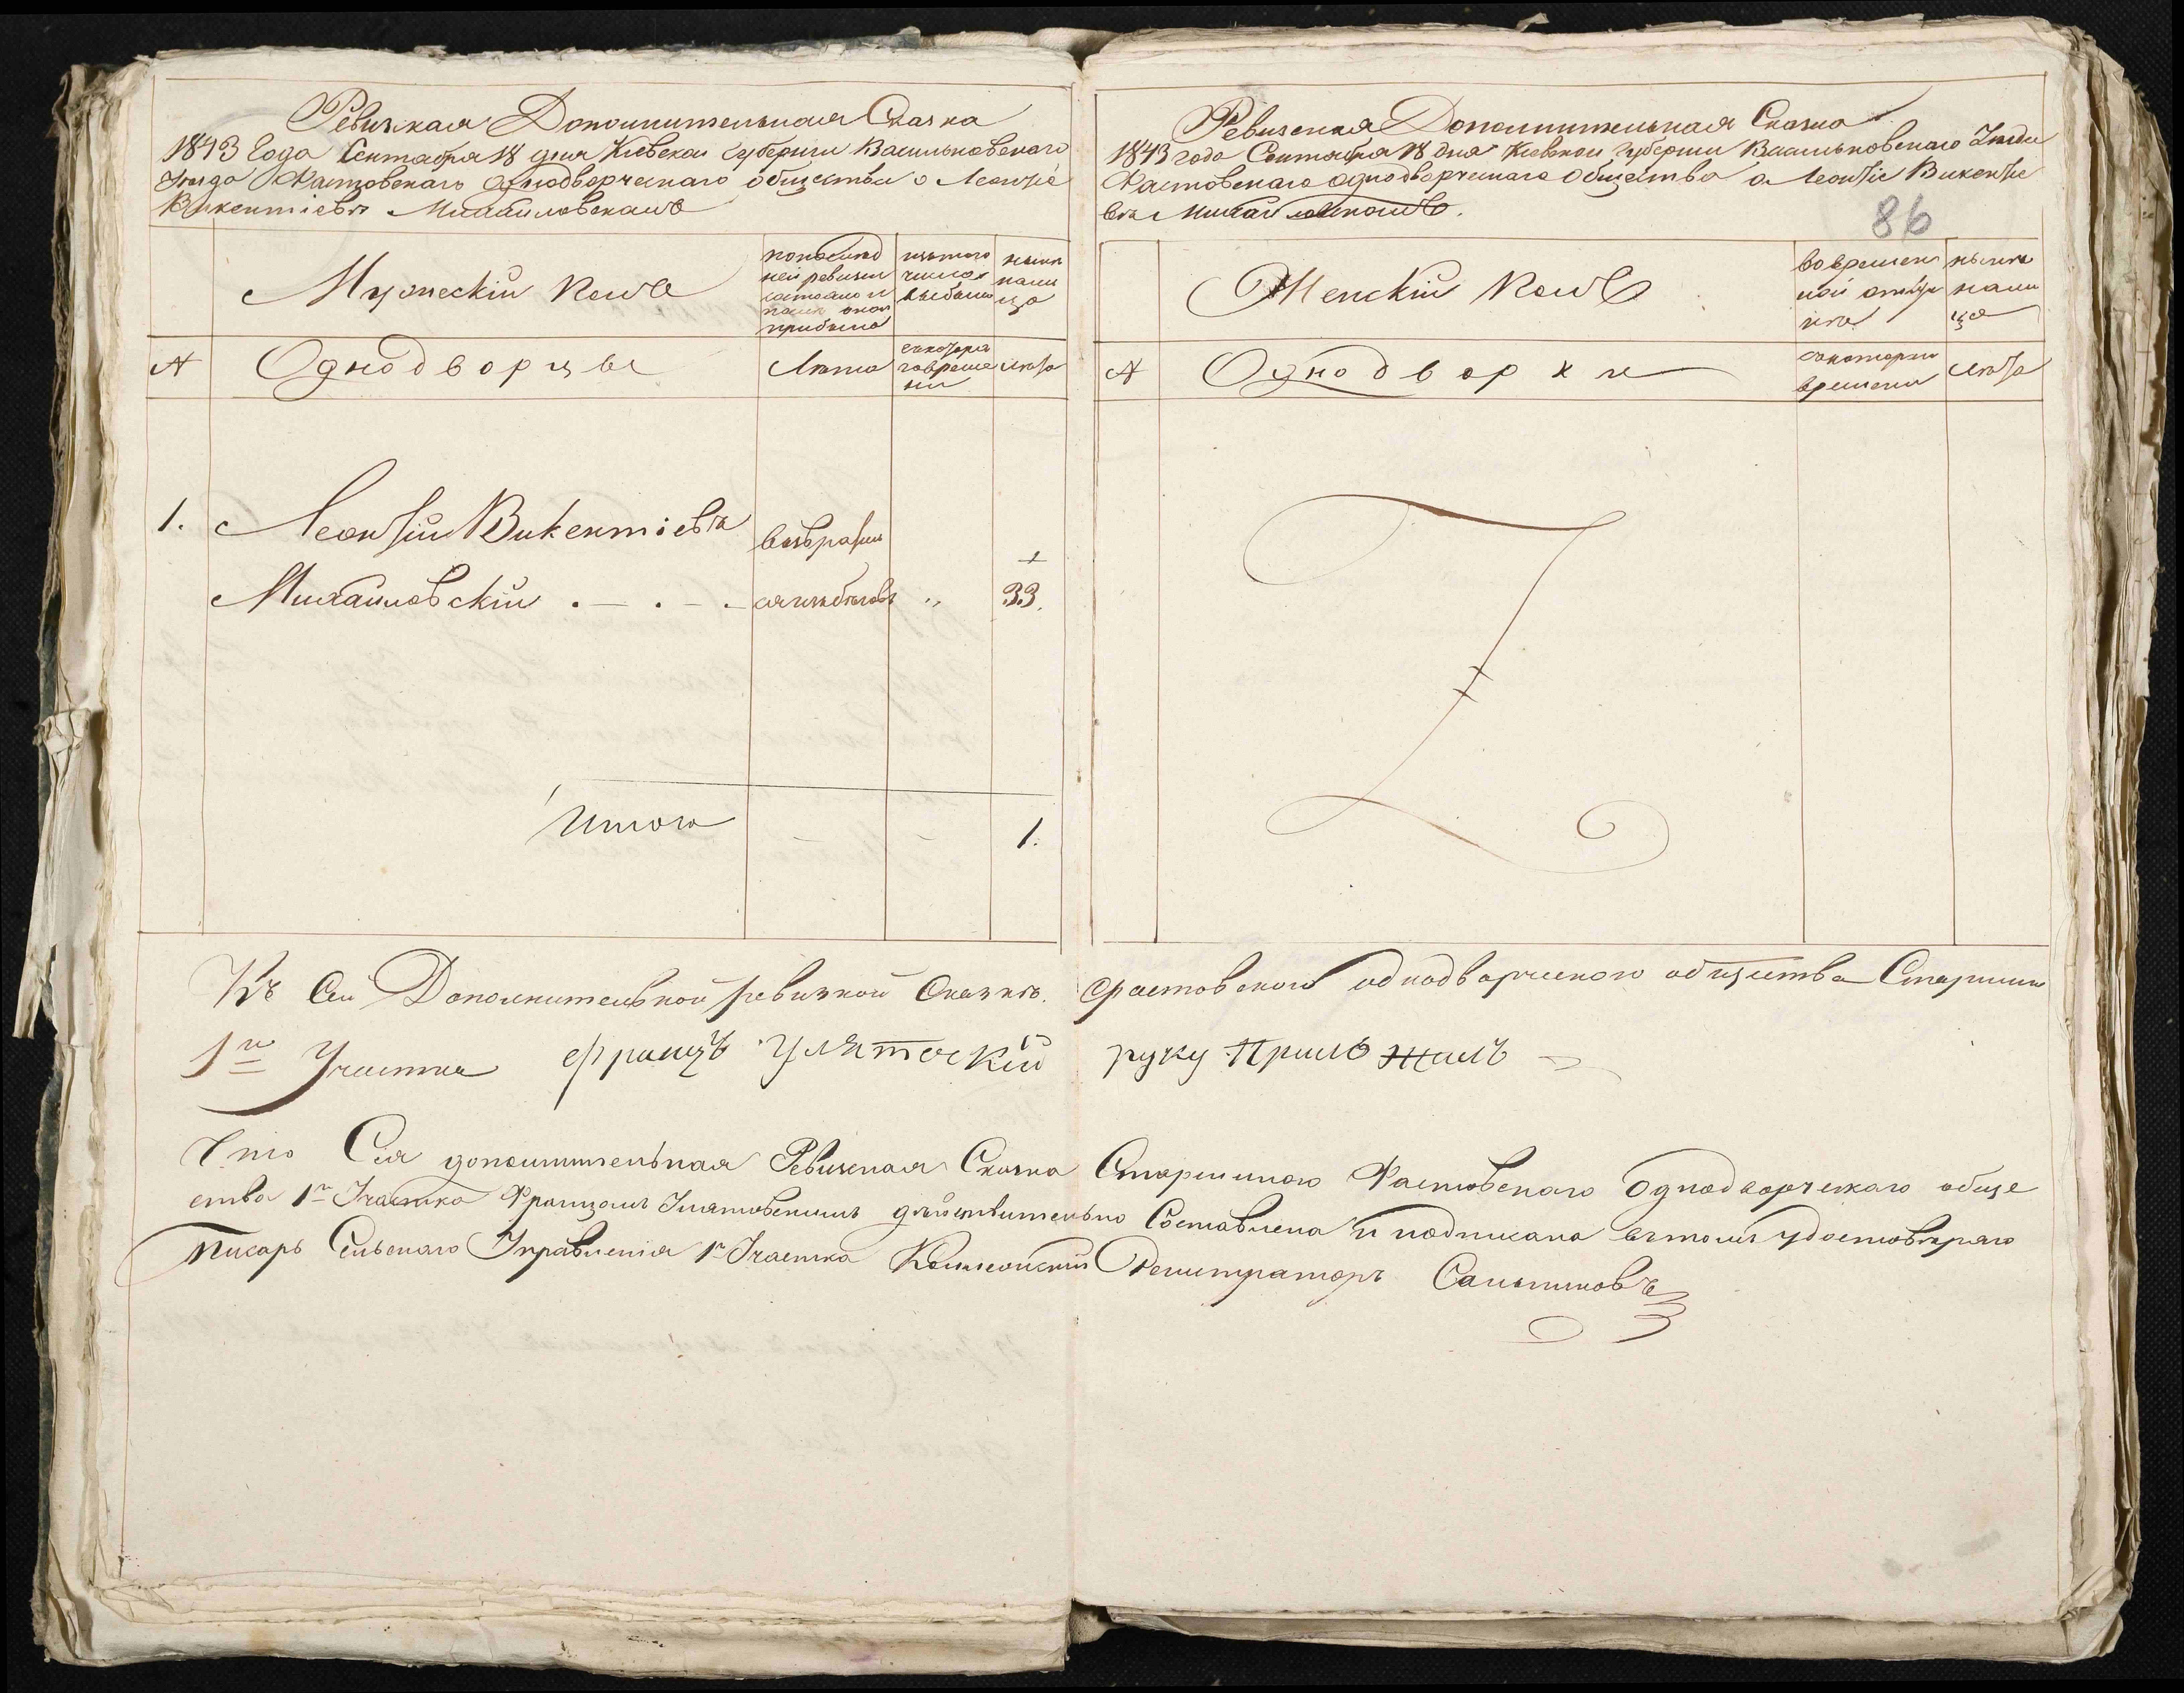 Ревизкая Дополнительная Сказка
1843 Года Сентября 18 дня Киевской губернии Васильковскаго
Уезда Фастовскаго однодворческаго общества о Леонтіе
Викентіевѣ Михайловскомъ
Мужескій Полъ
по последней ревизіи состояло и после оной прибыло
изъ того числа выбыло
ныне на лицо
№
Однодворцы
Лѣта
съ котораго времени
лѣта
1.
Леонтій Викентіевъ
возврати
1
Михайловскій . — . — . —
ся изъ бѣговъ
„
33.
Итого
—
—
1.
Ревизская Дополнительная Сказка
1843 года Сентября 18 дня Киевской губерніи Васильковскаго Уезда
Фастовскаго однодворческаго Общества о Леонтіе Викентіе
вѣ Михайловскомъ.
86
Женскій Полъ
во временной отлучке
ныне на лицо
№
Однодворки
съ котораго времени
лѣта
Къ Сей Дополнительной ревизкой Сказкѣ. Фастовского однодворческого общества Старшина
1го Участка Францъ Улятоскій руку приложилъ
Что Сія дополнительная Ревизская Сказка Старшиною Фастовскаго Однодворческаго обще
ства 1го Участка Францомъ Улятовскимъ дѣйствительно Составлена и подписана въ томъ удостовѣряю
Писарь Сельскаго Управленія 1го Участка Коллежскій Регистраторъ